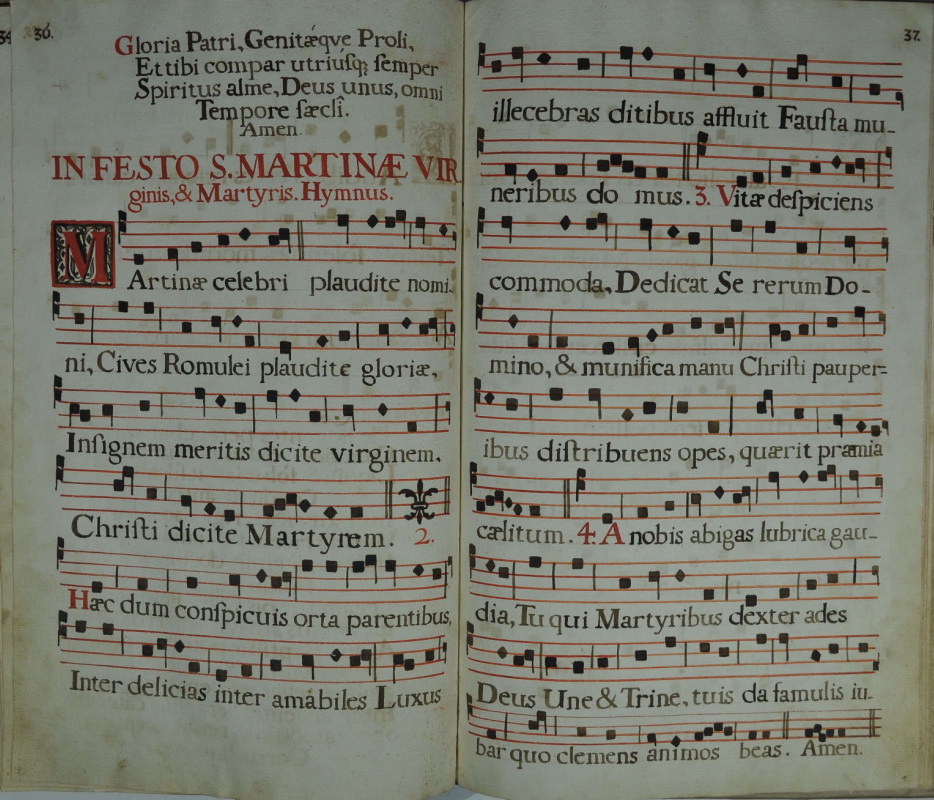 36.
Gloria Patri, Genitæqve Proli,
Et tibi compar utriuſq; ſemper
Spiritus alme, Deus unus, omni
Tempore ſæcli.
Amen.
IN FESTO S. MARTINÆ VIR
ginis, & Martyris. Hymnus.
MArtinæ celebri plaudite nomi-
ni, Cives Romulei plaudite gloriæ,
Inſignem meritis dicite virginem,
Chriſti dicite Martyrem. 2.
Hæc dum conſpicuis orta parentibus,
Inter delicias inter amabiles Luxus
37.
illecebras ditibus affluit Fauſta mu-
neribus do mus. 3. Vitæ deſpiciens
commoda, Dedicat Se rerum Do-
mino, & munifica manu Chriſti pauper=
ibus diſtribuens opes, quærit præmia
cælitum. 4. A nobis abigas lubrica gau-
dia, Tu qui Martyribus dexter ades
Deus Une & Trine, tuis da famulis iu-
bar quo clemens animos beas. Amen.